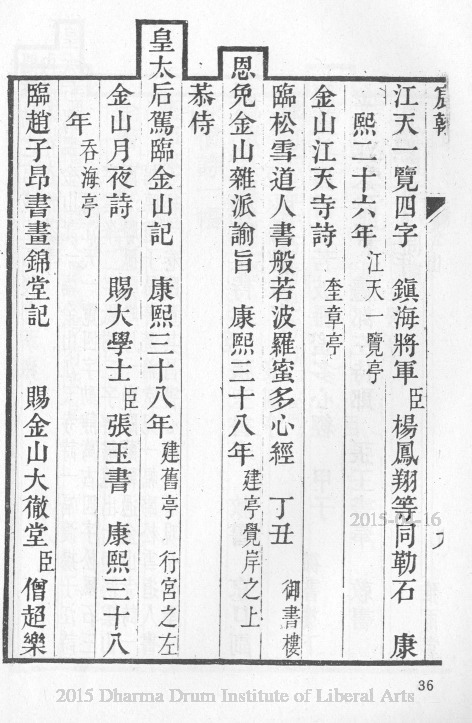 宸翰
九
江天一覽四字 鎮海將軍臣楊鳳翔等同勒石 康
熙二十六年江天一覽亭
金山江天寺詩 奎章亭
臨松雪道人書般若波羅蜜多心經 丁丑 御書樓
恩免金山雜派諭旨 康熙三十八年建亭覺岸之上
恭侍
皇太后駕臨金山記 康熙三十八年建舊亭 行宮之左
金山月夜詩 賜大學士臣張玉書 康熙三十八
年吞海亭
臨趙子昂書畫錦堂記 賜金山大徹堂臣僧超樂
36
2015 Dharma Drum Institute of Liberal Arts